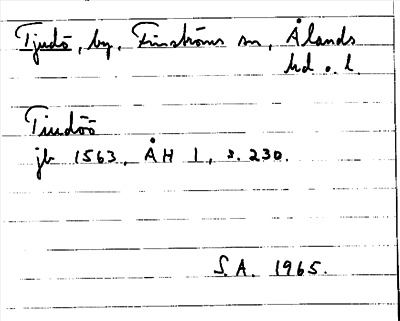 Tjudö, by, Finströms sn, Ålands
hd o. l.
Tiudöö
jb 1563, ÅH 1, s. 230.
S.A. 1965.